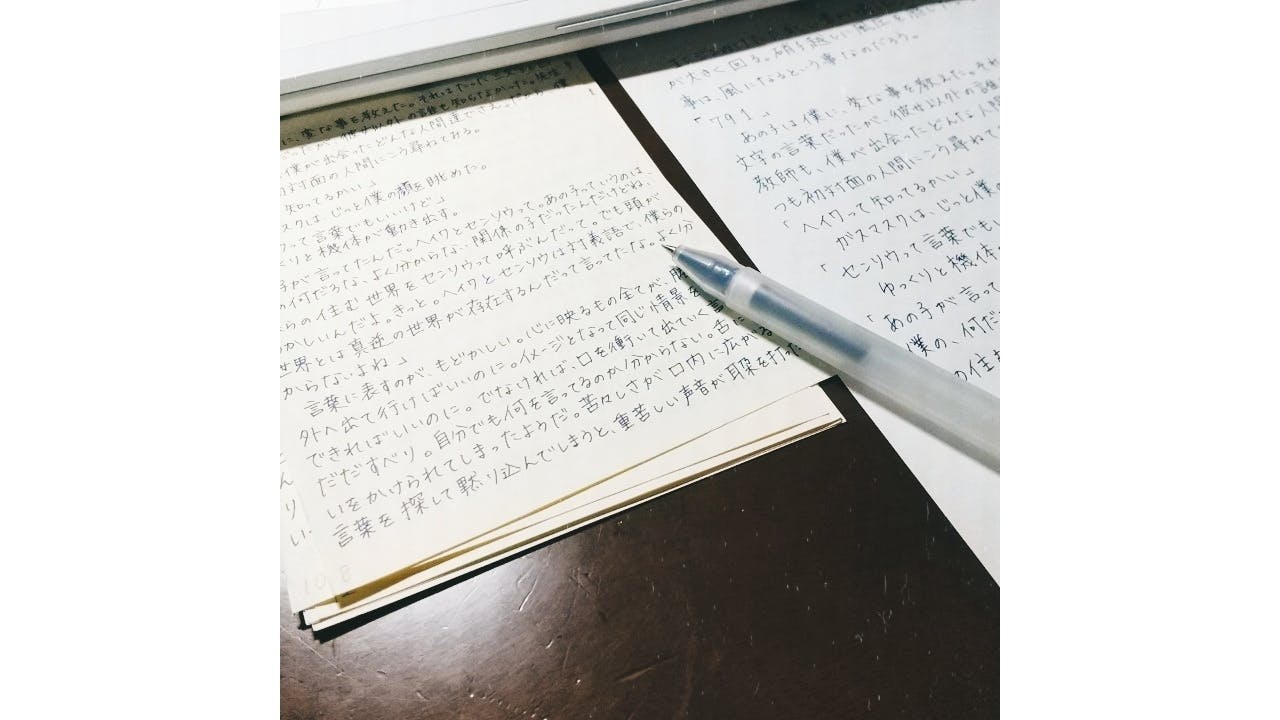 に、変な事を教えた。それはたった三文字
だったが、彼女以外の誰も知らなかった。先生も
僕が出会ったどんな人間達でさえ。だから、僕
初対面の人間にこう尋ねてみる。
知ってるかい」
スクは、じっと僕の顔を眺めた。
って言葉でもいいけど」
くりと機体が動き出す。
子が言ってたんだ。ヘイワとセンソウって。あの子っていうのは、
の何だろな、よく分からない、関係の子だったんだけどね、
らの住む世界をセンソウって呼ぶんだって。でも頭が
かしいんだよ。きっと。ヘイワとセンソウは対義語で、僕らの
世界とは真逆の世界が存在するんだって言ってたな。よく分
からないよね」
言葉に表すのが、もどかしい。心に映るもの全てが、
外へ出て行けばいいのに。イメージとなって同じ情景を
できればいいのに。でなければ、口を衝いて出ていく言
だだすべり。自分でも何を言ってるのか分からない。舌に
いをかけられてしまったようだ。苦々しさが口内に広がる
言葉を探して黙り込んでしまうと、重苦しい声音が耳朶を打った
ん
り
い
10 8
1
が大きく回る。硝子越しに風圧を
事は、風になるという事なのだろう。
「791」
あの子は僕に、変な事を教えた。それ
文字の言葉だったが、彼女以外の誰
教師も、僕が出会ったどんな人間
つも初対面の人間にこう尋ねて
「ヘイワって知ってるかい」
ガスマスクは、じっと僕の
「センソウって言葉でもい
ゆっくりと機体
「あの子が言って
僕の、何だ
の住